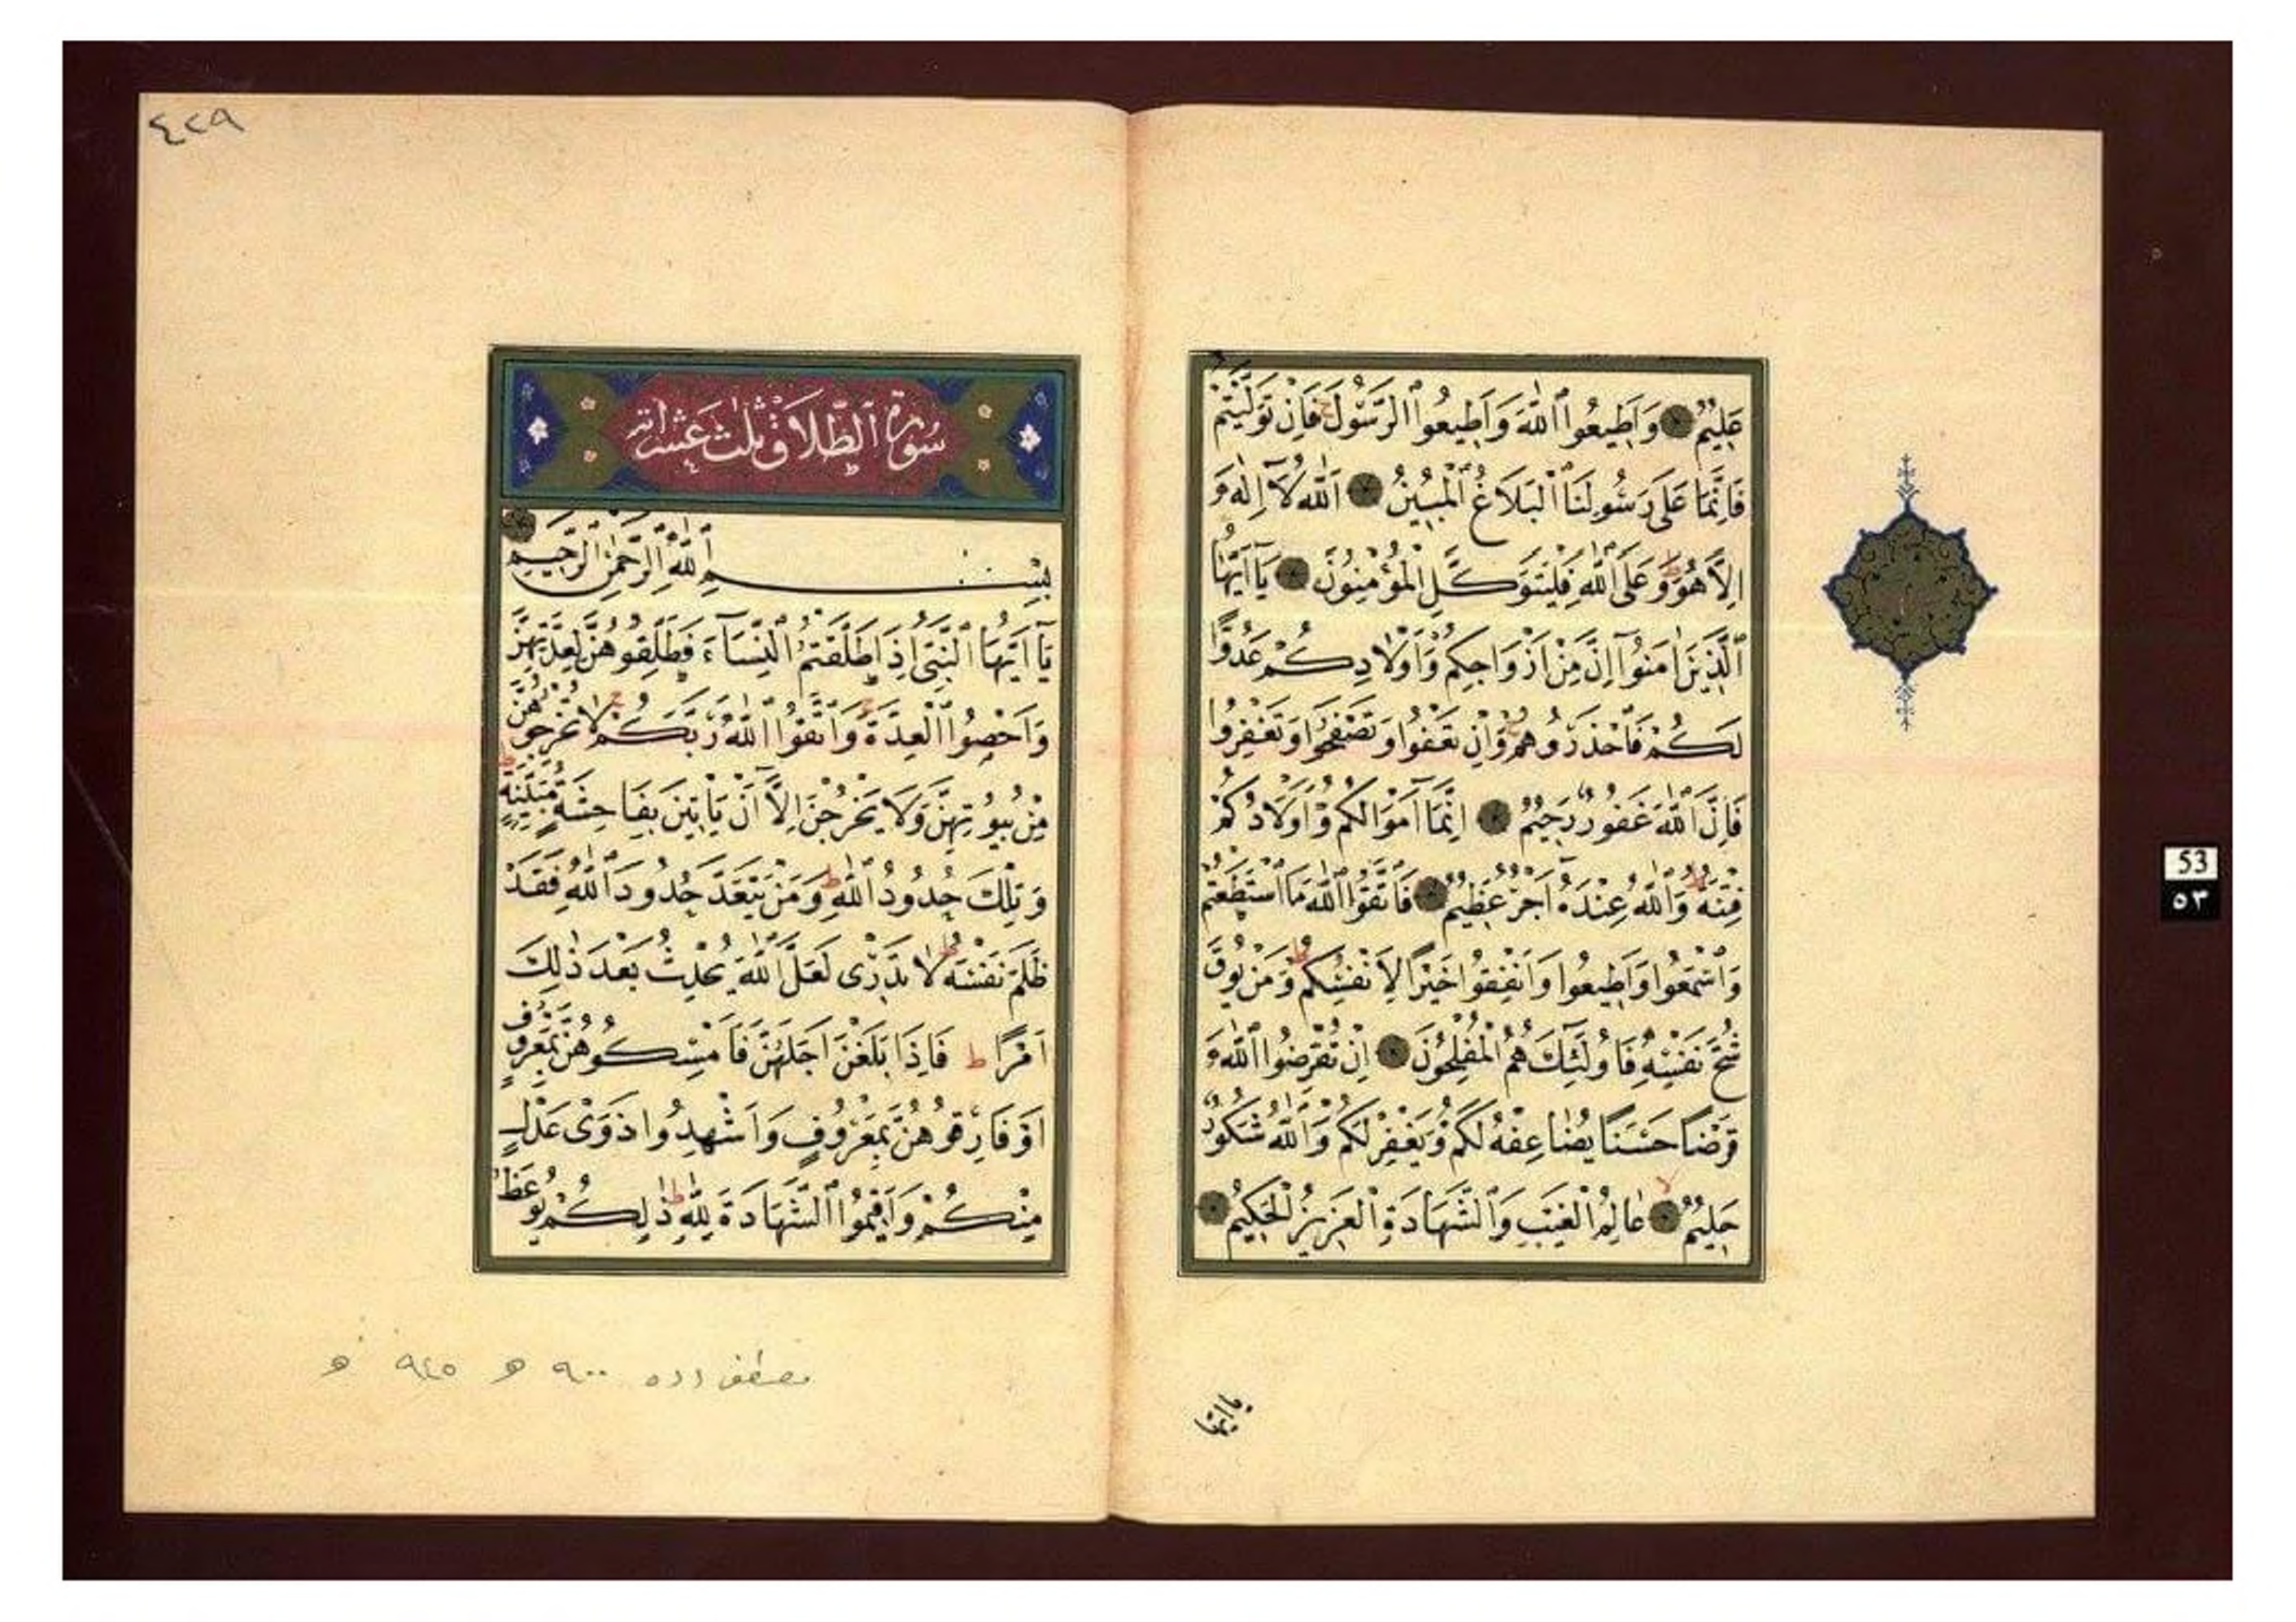 عَلِيمٌ وَاَطِيعُوا اللّٰهَ وَاَطِيعُوا الرَّسُولَ ج فَاِنْ تَوَلَّيْتُمْ
فَاِنَّمَا عَلٰى رَسُولِنَا الْبَلَاغُ الْمُبِينُ اَللّٰهُ لَآ اِلٰهَ
اِلَّا هُوَ ط وَعَلَى اللّٰهِ فَلْيَتَوَكَّلِ الْمُؤْمِنُونَ يَآ اَيُّهَا
الَّذِينَ اٰمَنُوٓا اِنَّ مِنْ اَزْوَاجِكُمْ وَاَوْلَادِكُمْ عَدُوًّا
لَكُمْ فَاحْذَرُوهُمْ ج وَاِنْ تَعْفُوا وَتَصْفَحُوا وَتَغْفِرُوا
فَاِنَّ اللّٰهَ غَفُورٌ رَحِيمٌ اِنَّمَآ اَمْوَالُكُمْ وَاَوْلَادُكُمْ
فِتْنَةٌ ط وَاللّٰهُ عِنْدَهُٓ اَجْرٌ عَظِيمٌ فَاتَّقُوا اللّٰهَ مَا اسْتَطَعْتُمْ
وَاسْمَعُوا وَاَطِيعُوا وَاَنْفِقُوا خَيْرًا لِاَنْفُسِكُمْ ط وَمَنْ يُوقَ
شُحَّ نَفْسِهِ فَاُولٰٓئِكَ هُمُ الْمُفْلِحُونَ اِنْ تُقْرِضُوا اللّٰهَ
قَرْضًا حَسَنًا يُضَاعِفْهُ لَكُمْ وَيَغْفِرْ لَكُمْ وَاللّٰهُ شَكُورٌ
حَلِيمٌ لا عَالِمُ الْغَيْبِ وَالشَّهَادَةِ الْعَزِيزُ الْحَكِيمُ
٤٢٩
سُورَةُ الطَّلَاقِ ثَلٰثَ عَشْرَ اٰيَة
بِسْمِ اللّٰهِ الرَّحْمٰنِ الرَّحِيمِ
يَآ اَيُّهَا النَّبِيُّ اِذَا طَلَّقْتُمُ النِّسَآءَ فَطَلِّقُوهُنَّ لِعِدَّتِهِنَّ
وَاَحْصُوا الْعِدَّةَ ج وَاتَّقُوا اللّٰهَ رَبَّكُمْ ج لَا تُخْرِجُوهُنَّ
مِنْ بُيُوتِهِنَّ وَلَا يَخْرُجْنَ اِلَّآ اَنْ يَأْتِينَ بِفَاحِشَةٍ مُبَيِّنَةٍ ط
وَتِلْكَ حُدُودُ اللّٰهِ ط وَمَنْ يَتَعَدَّ حُدُودَ اللّٰهِ فَقَدْ
ظَلَمَ نَفْسَهُ ط لَا تَدْرِى لَعَلَّ اللّٰهَ يُحْدِثُ بَعْدَ ذٰلِكَ
اَمْرًا ط فَاِذَا بَلَغْنَ اَجَلَهُنَّ فَاَمْسِكُوهُنَّ بِمَعْرُوفٍ
اَوْ فَارِقُوهُنَّ بِمَعْرُوفٍ وَاَشْهِدُوا ذَوَىْ عَدْلٍ
مِنْكُمْ وَاَقِيمُوا الشَّهَادَةَ لِلّٰهِ ط ذٰلِكُمْ يُوعَظُ
مصطفى دده ٩٠٠ هـ ٩٤٥ هـ
53
٥٣